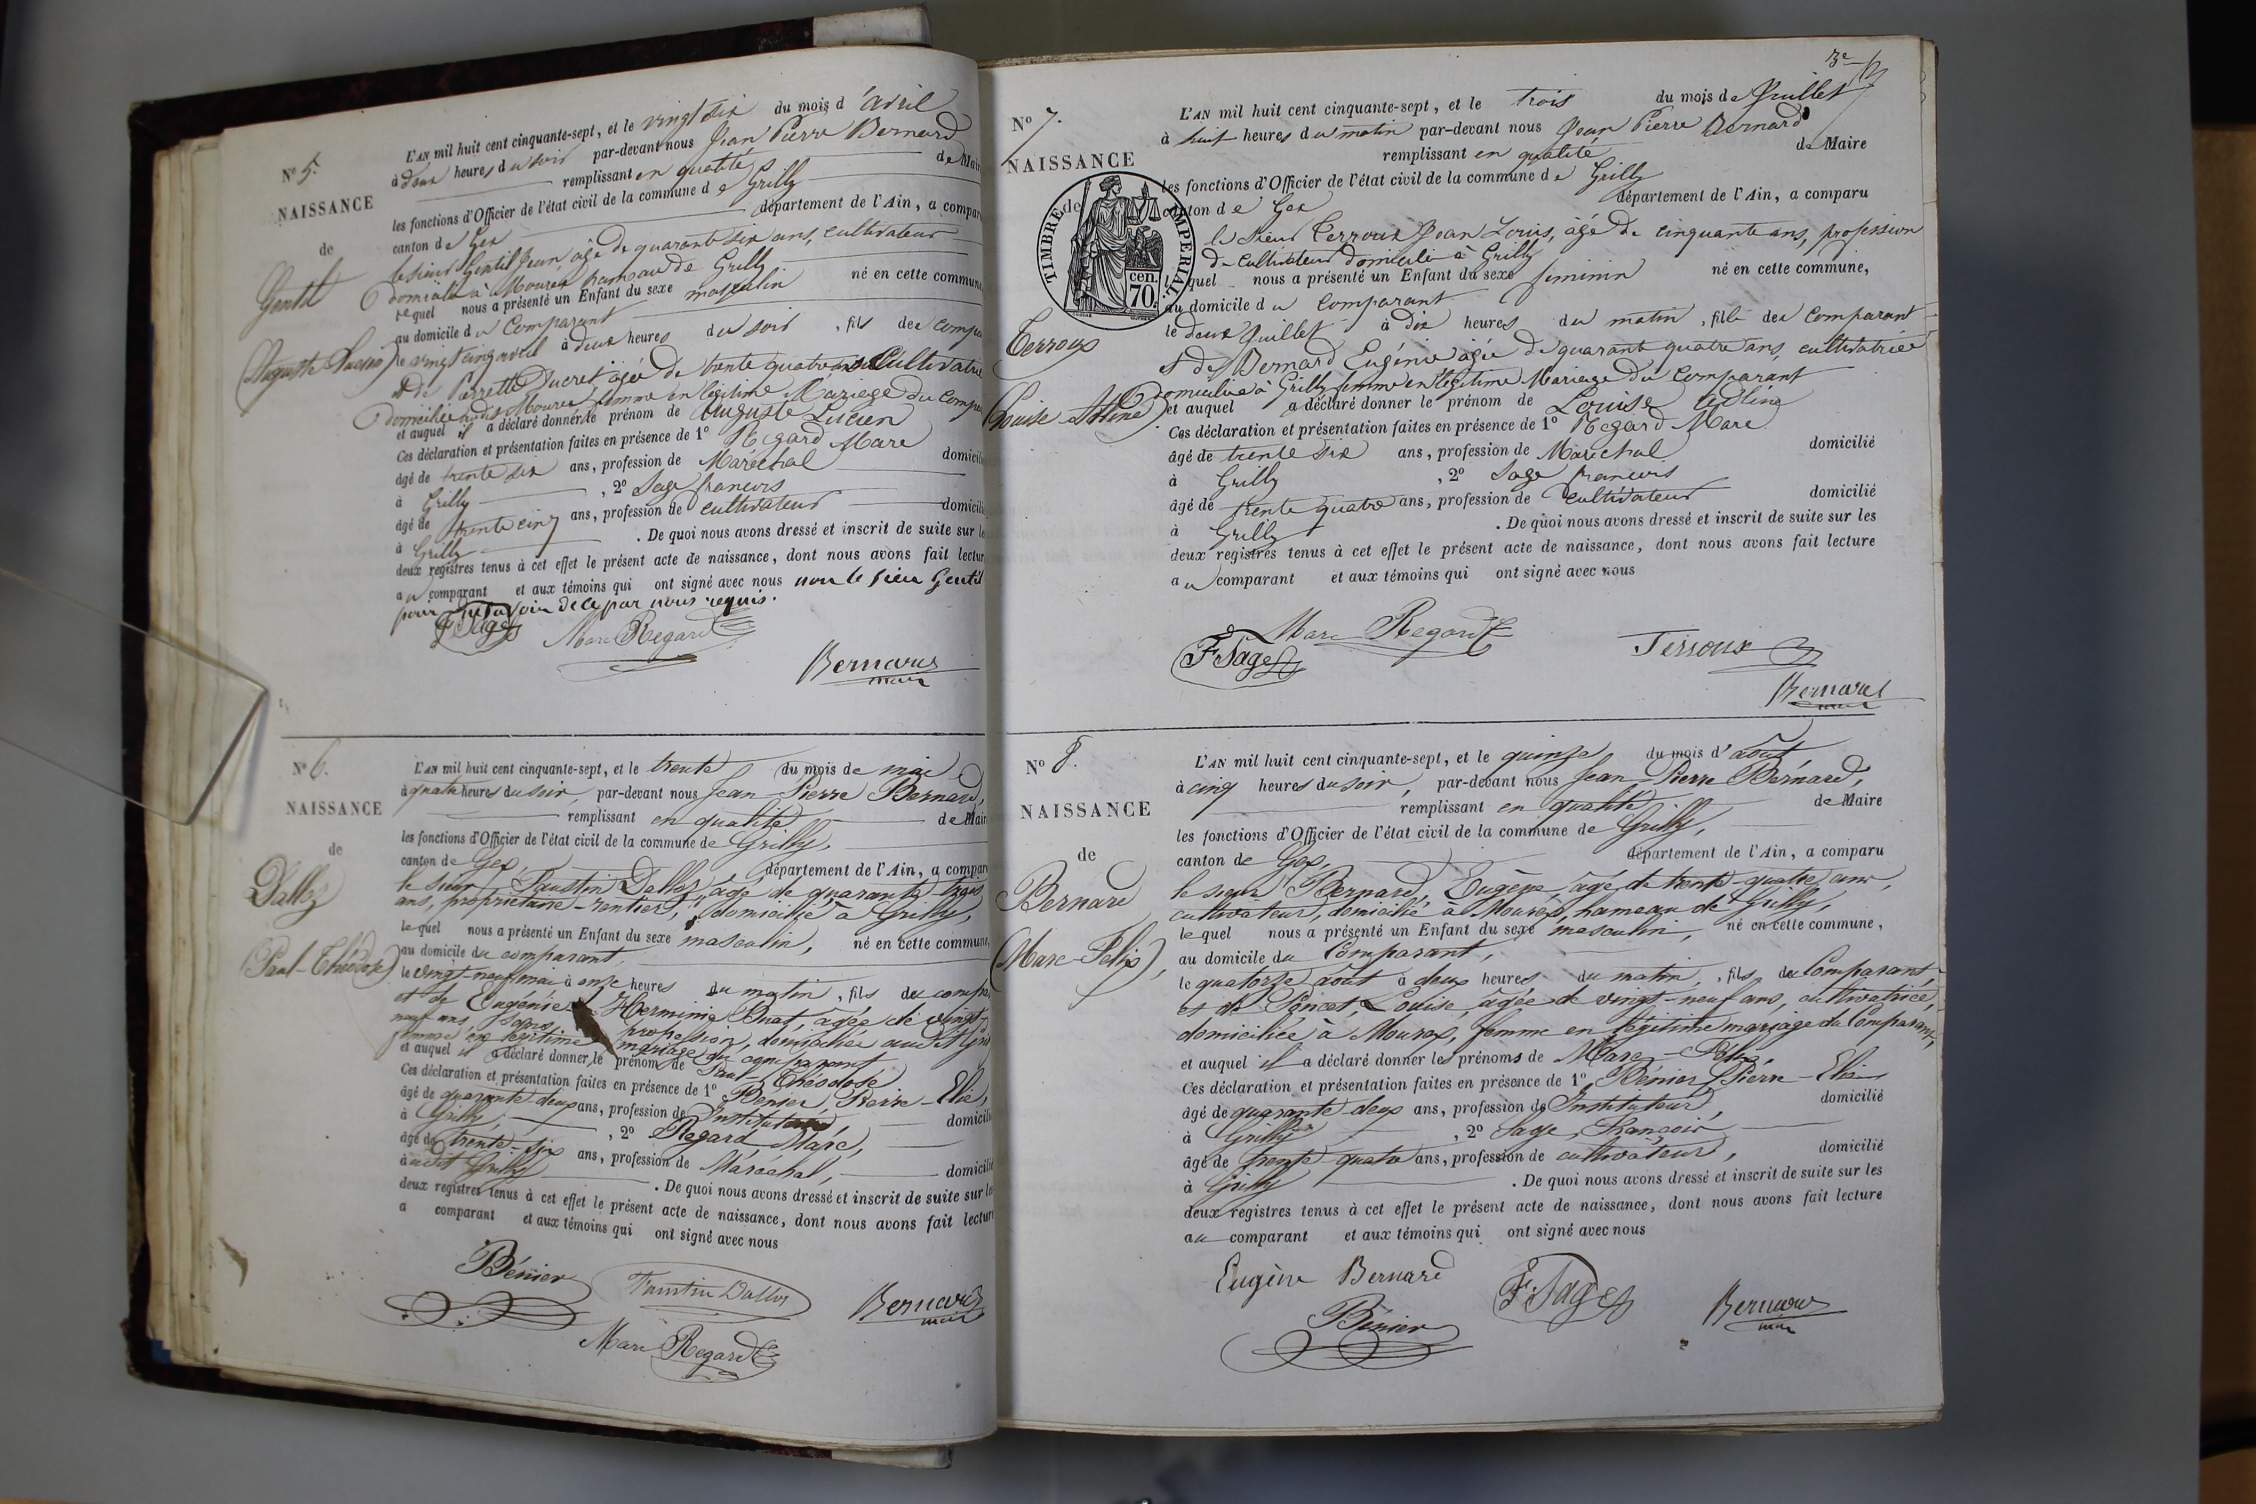 N° 5.
NAISSANCE
de
Gentil
(Auguste Lucien)
L'AN mil huit cent cinquante-sept, et le vingt six du mois d'avril
à deux heures du soir par-devant nous Jean Pierre Bernard
remplissant en qualité de Maire
les fonctions d'Officier de l'état civil de la commune de Grilly
canton de Gex département de l'Ain, a comparu
le sieur Gentil Jean âgé de quarante six ans, cultivateur
domicilié à Mourex hameau de Grilly
lequel nous a présenté un Enfant du sexe masculin né en cette commune
au domicile du Comparant
le vingt cinq avril à deux heures du soir, fils des compa
et de Perrette Ducret âgée de trente quatre ans Cultivatrice
domiciliée Mourex femme en légitime Mariage du Compa
et auquel il a déclaré donner le prénom de Auguste Lucien
Ces déclaration et présentation faites en présence de 1° Regard Marc
âgé de trente six ans, profession de Maréchal domicilié
à Grilly, 2° Sage francois
âgé de trente cinq ans, profession de cultivateur domicilié
à Grilly. De quoi nous avons dressé et inscrit de suite sur le
deux registres tenus à cet effet le présent acte de naissance, dont nous avons fait lectur
au comparant et aux témoins qui ont signé avec nous non le sieur Gentil
pour ne savoir de ce par nous requis.
F Sage Marc Regard
Bernard
maire
N° 6.
NAISSANCE
de
Dalloz
(Paul-Théodose)
L'AN mil huit cent cinquante-sept, et le trente du mois de mai
à quatre heures du soir, par-devant nous Jean-Pierre Bernard,
remplissant en qualité de Maire
les fonctions d'Officier de l'état civil de la commune de Grilly,
canton de Gex, département de l'Ain, a comparu
le sieur Faustin Dalloz, âgé de quarante trois
ans, propriétaire-rentier, domicilié à Grilly,
lequel nous a présenté un Enfant du sexe masculin, né en cette commune,
au domicile du comparant,
le vingt-neuf mai à onze heures du matin, fils du compa
et de Eugénie Herminie âgée de vingt
neuf ans, sans profession, domiciliée audit Gri
femme en légitime mariage du comparant
et auquel il a déclaré donner le prénom de Paul-Théodose
Ces déclaration et présentation faites en présence de 1° Bénier, Pierre-Elie,
âgé de quarante-deux ans, profession de Instituteur domicilié
à Grilly, 2° Regard, Marc,
âgé de trente-six ans, profession de Maréchal, domicilié
audit Grilly. De quoi nous avons dressé et inscrit de suite sur les
deux registres tenus à cet effet le présent acte de naissance, dont nous avons fait lecture
a comparant et aux témoins qui ont signé avec nous
Bénier Faustin Dalloz Bernard
maire
Marc Regard
3e
N° 7.
NAISSANCE
de
TIMBRE IMPERIAL
70 cen.
Terroux
(Louise Adline)
L'AN mil huit cent cinquante-sept, et le trois du mois de Juillet
à huit heures du matin par-devant nous Jean Pierre Bernard
remplissant en qualité de Maire
les fonctions d'Officier de l'état civil de la commune de Grilly
canton de Gex département de l'Ain, a comparu
le Sieur Terroux Jean Louis, âgé de cinquante ans, profession
de Cultivateur domicilié à Grilly
lequel nous a présenté un Enfant du sexe féminin né en cette commune,
au domicile du Comparant
le deux Juillet à dix heures du matin, fille des Comparant
et de Bernard Eugénie âgée de quarante quatre ans, cultivatrice
domiciliée à Grilly femme en légitime Mariage du Comparant
et auquel a déclaré donner le prénom de Louise Adline
Ces déclaration et présentation faites en présence de 1° Regard Marc
âgé de trente six ans, profession de Maréchal domicilié
à Grilly, 2° Sage francois
âgé de trente quatre ans, profession de cultivateur domicilié
à Grilly. De quoi nous avons dressé et inscrit de suite sur les
deux registres tenus à cet effet le présent acte de naissance, dont nous avons fait lecture
au comparant et aux témoins qui ont signé avec nous
Marc Regard
F Sage Terroux
Bernard
maire
N° 8.
NAISSANCE
de
Bernard
(Marc-Félix),
L'AN mil huit cent cinquante-sept, et le quinze du mois d'août,
à cinq heures du soir, par-devant nous Jean-Pierre Bernard,
remplissant en qualité de Maire
les fonctions d'Officier de l'état civil de la commune de Grilly,
canton de Gex, département de l'Ain, a comparu
le sieur Bernard, Eugène, âgé de trente-quatre ans,
cultivateur, domicilié à Mourex, hameau de Grilly,
lequel nous a présenté un Enfant du sexe masculin, né en cette commune,
au domicile du Comparant,
le quatorze août à deux heures du matin, fils du Comparant,
et de Poncet, Louise, âgée de vingt-neuf ans, cultivatrice,
domiciliée à Mourex, femme en légitime mariage du Comparant,
et auquel il a déclaré donner les prénoms de Marc-Félix,
Ces déclaration et présentation faites en présence de 1° Bénier, Pierre-Elie
âgé de quarante-deux ans, profession de Instituteur, domicilié
à Grilly, 2° Sage, François
âgé de trente-quatre ans, profession de cultivateur, domicilié
à Grilly. De quoi nous avons dressé et inscrit de suite sur les
deux registres tenus à cet effet le présent acte de naissance, dont nous avons fait lecture
au comparant et aux témoins qui ont signé avec nous
Eugène Bernard F. Sage Bernard
maire
Bénier